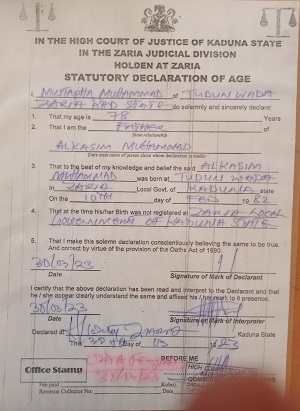 IN THE HIGH COURT OF JUSTICE OF KADUNA STATE
IN THE ZARIA JUDICIAL DIVISION
HOLDEN AT ZARIA
STATUTORY DECLARATION OF AGE
I, MUSTAPHA MUHAMMAD of TUDUN WADA
ZARIA KAD STATE do solemnly and sincerely declare:
1. That my age is 78 Years
2. That I am the FATHER
ALKASIM MUHAMMAD
3. That to the best of my knowledge and belief the said ALKASIM
MUHAMMAD was born at TUDUN WADA
in ZARIA Local Govt. of KADUNA state
On the 10TH day of FEB 1982
4. That at the time his/her Birth was not registered at ZARIA LOCAL
GOVERNMENT OF KADUNA STATE
5. That I make this solemn declaration conscientiously believing the same to be true.
And correct by virtue of the provision of the Oaths Act of 1990.
30/03/23
Date Signature of Mark of Declarant
I certify that the above declaration has been read and interpreter to the Declarant and that
he / she appear clearly understand the same and affixed his / her mark to presents.
30/03/23
Date Signature or Mark of Interpreter
Declared at Kaduna State
This 30 day of 03
BEFORE ME
Office Stamp
Fee paid
Revenue Collector No: Date